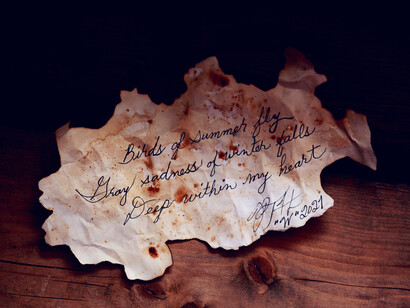 Birds of summer fly
Gray sadness of winter falls
Deep within my heart
"N" 2021